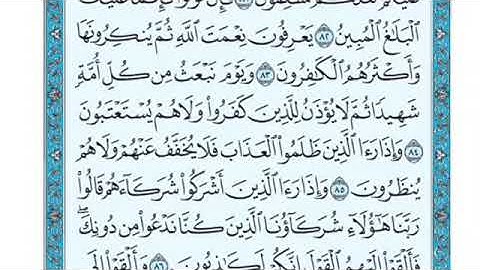 ٱلْبَلَٰغُ ٱلْمُبِينُ ٨٢ يَعْرِفُونَ نِعْمَتَ ٱللَّهِ ثُمَّ يُنكِرُونَهَا
وَأَكْثَرُهُمُ ٱلْكَٰفِرُونَ ٨٣ وَيَوْمَ نَبْعَثُ مِن كُلِّ أُمَّةٍ
شَهِيدًا ثُمَّ لَا يُؤْذَنُ لِلَّذِينَ كَفَرُوا۟ وَلَا هُمْ يُسْتَعْتَبُونَ
٨٤ وَإِذَا رَءَا ٱلَّذِينَ ظَلَمُوا۟ ٱلْعَذَابَ فَلَا يُخَفَّفُ عَنْهُمْ وَلَا هُمْ
يُنظَرُونَ ٨٥ وَإِذَا رَءَا ٱلَّذِينَ أَشْرَكُوا۟ شُرَكَآءَهُمْ قَالُوا۟
رَبَّنَا هَٰٓؤُلَآءِ شُرَكَآؤُنَا ٱلَّذِينَ كُنَّا نَدْعُوا۟ مِن دُونِكَ ۖ
فَأَلْقَوْا۟ إِلَيْهِمُ ٱلْقَوْلَ إِنَّكُمْ لَكَٰذِبُونَ ٨٦ وَأَلْقَوْا۟ إِلَى